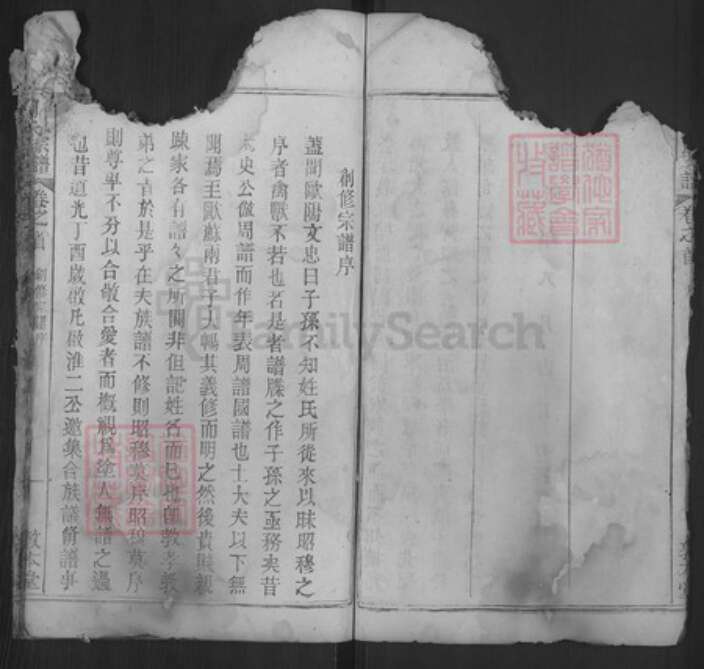 創修宗譜序
蓋聞歐陽文忠曰子孫不知姓氏所從來以昧昭穆之
序者禽獸不若也若是者譜牒之作子孫之亟務矣昔
太史公倣周譜而作年表周譜國譜也士大夫以下無
聞焉至歐蘇兩君子大暢其義修而明之然後貴賤親
疎家各有譜々之所關非但記姓名而已也即教孝教
弟之旨於是乎在夫族譜不修則昭穆莫序昭穆莫序
則尊卑不分以合敬合愛者而概視爲塗人無譜之過
也昔道光丁酉歲敬凡倣淮二公邀集合族議脩譜事
宗譜
卷之首
創修宗譜序
敦本堂
譜
卷之首
FamilySearch